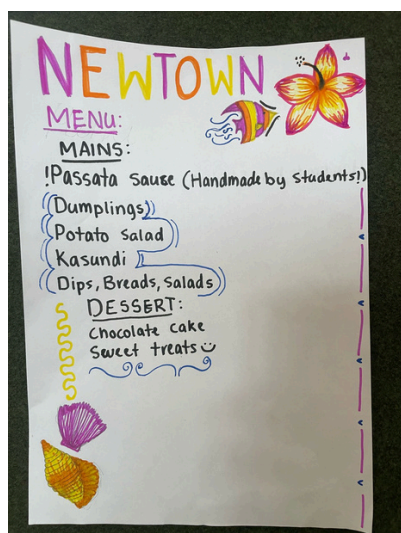 NEWTOWN
MENU:
MAINS:
!Passata sause (Handmade by Students!)
Dumplings
Potato Salad
Kasundi
Dips, Breads, Salads
DESSERT:
Chocolate cake
Sweet treats